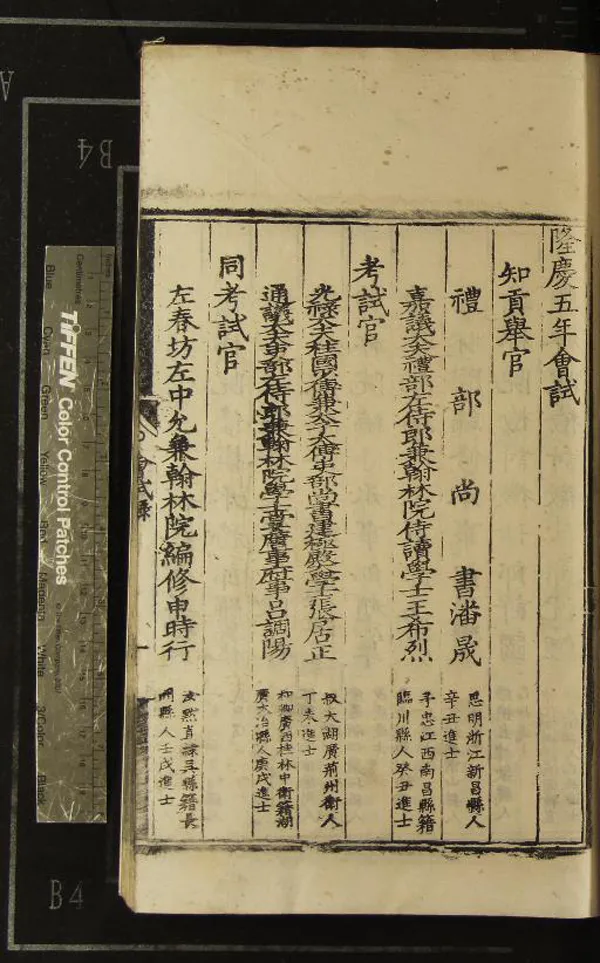 隆慶五年會試
知貢舉官
禮部尚書潘晟
思明浙江新昌縣人
辛丑進士
嘉議大夫禮部左侍郎兼翰林院侍讀學士王希烈
子忠江西南昌縣籍
臨川縣人癸丑進士
考試官
光祿大夫柱國少傅兼太子太傅吏部尚書建極殿大學士張居正
叔大湖廣荊州衛人
丁未進士
通議大夫吏部左侍郎兼翰林院學士掌詹事府事呂調陽
和卿廣西桂林中衛籍湖
廣大冶縣人庚戌進士
同考試官
左春坊左中允兼翰林院編修申時行
汝默直隸吳縣籍長
洲縣人壬戌進士
會試錄
TIFFEN Color Control Patches
Centimetres
Inches
Blue Cyan Green Yellow Red Magenta White 3/Color Black
A
B4
B4